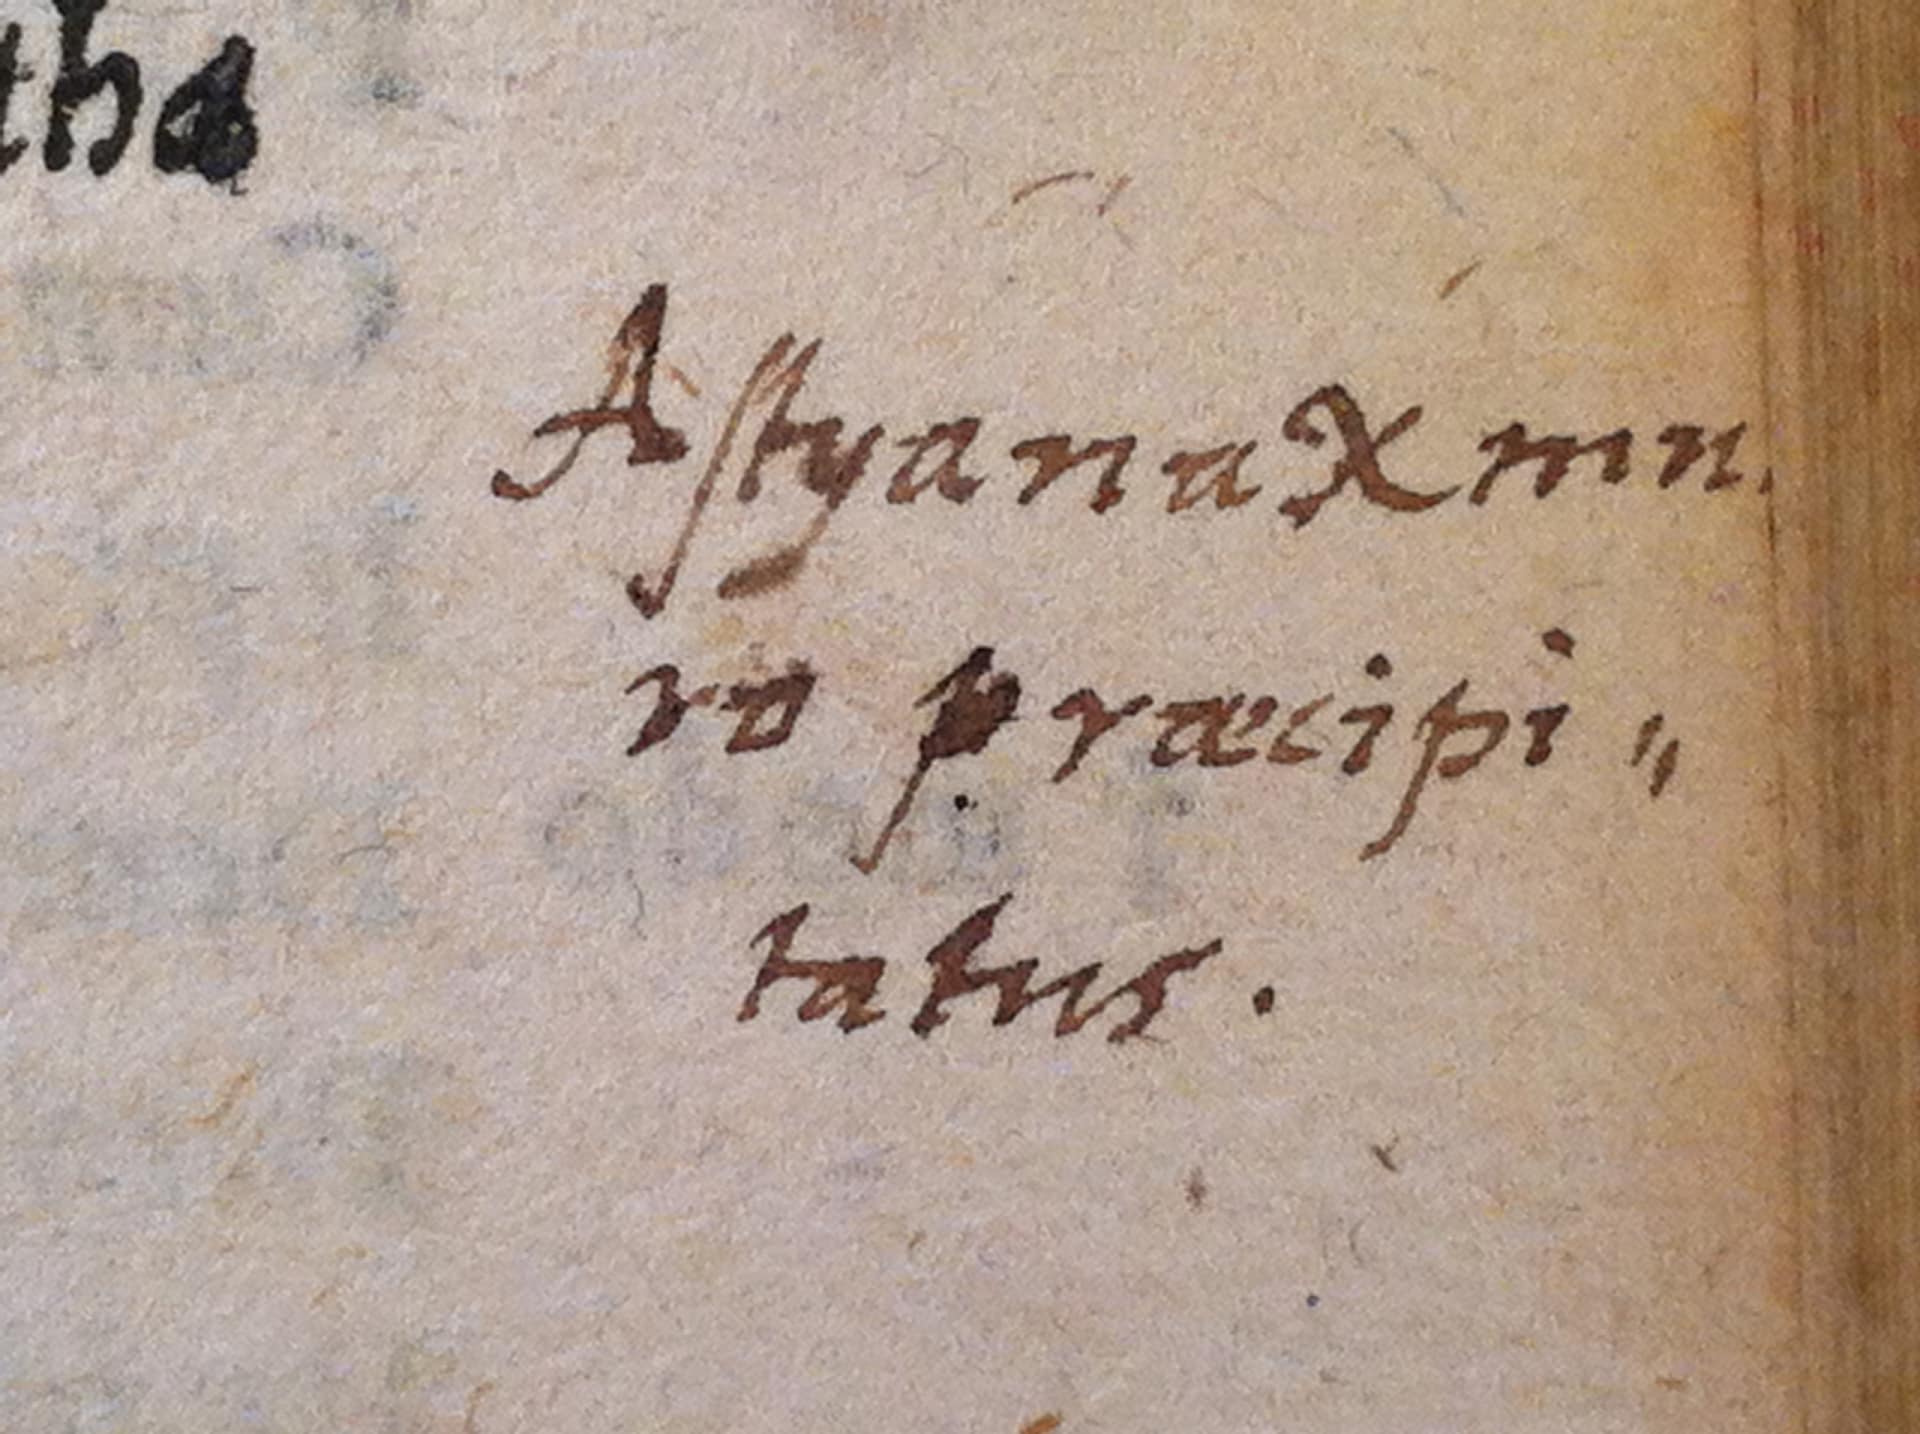 tha
Aſtyanax mu,
ro præcipi„
tatus.